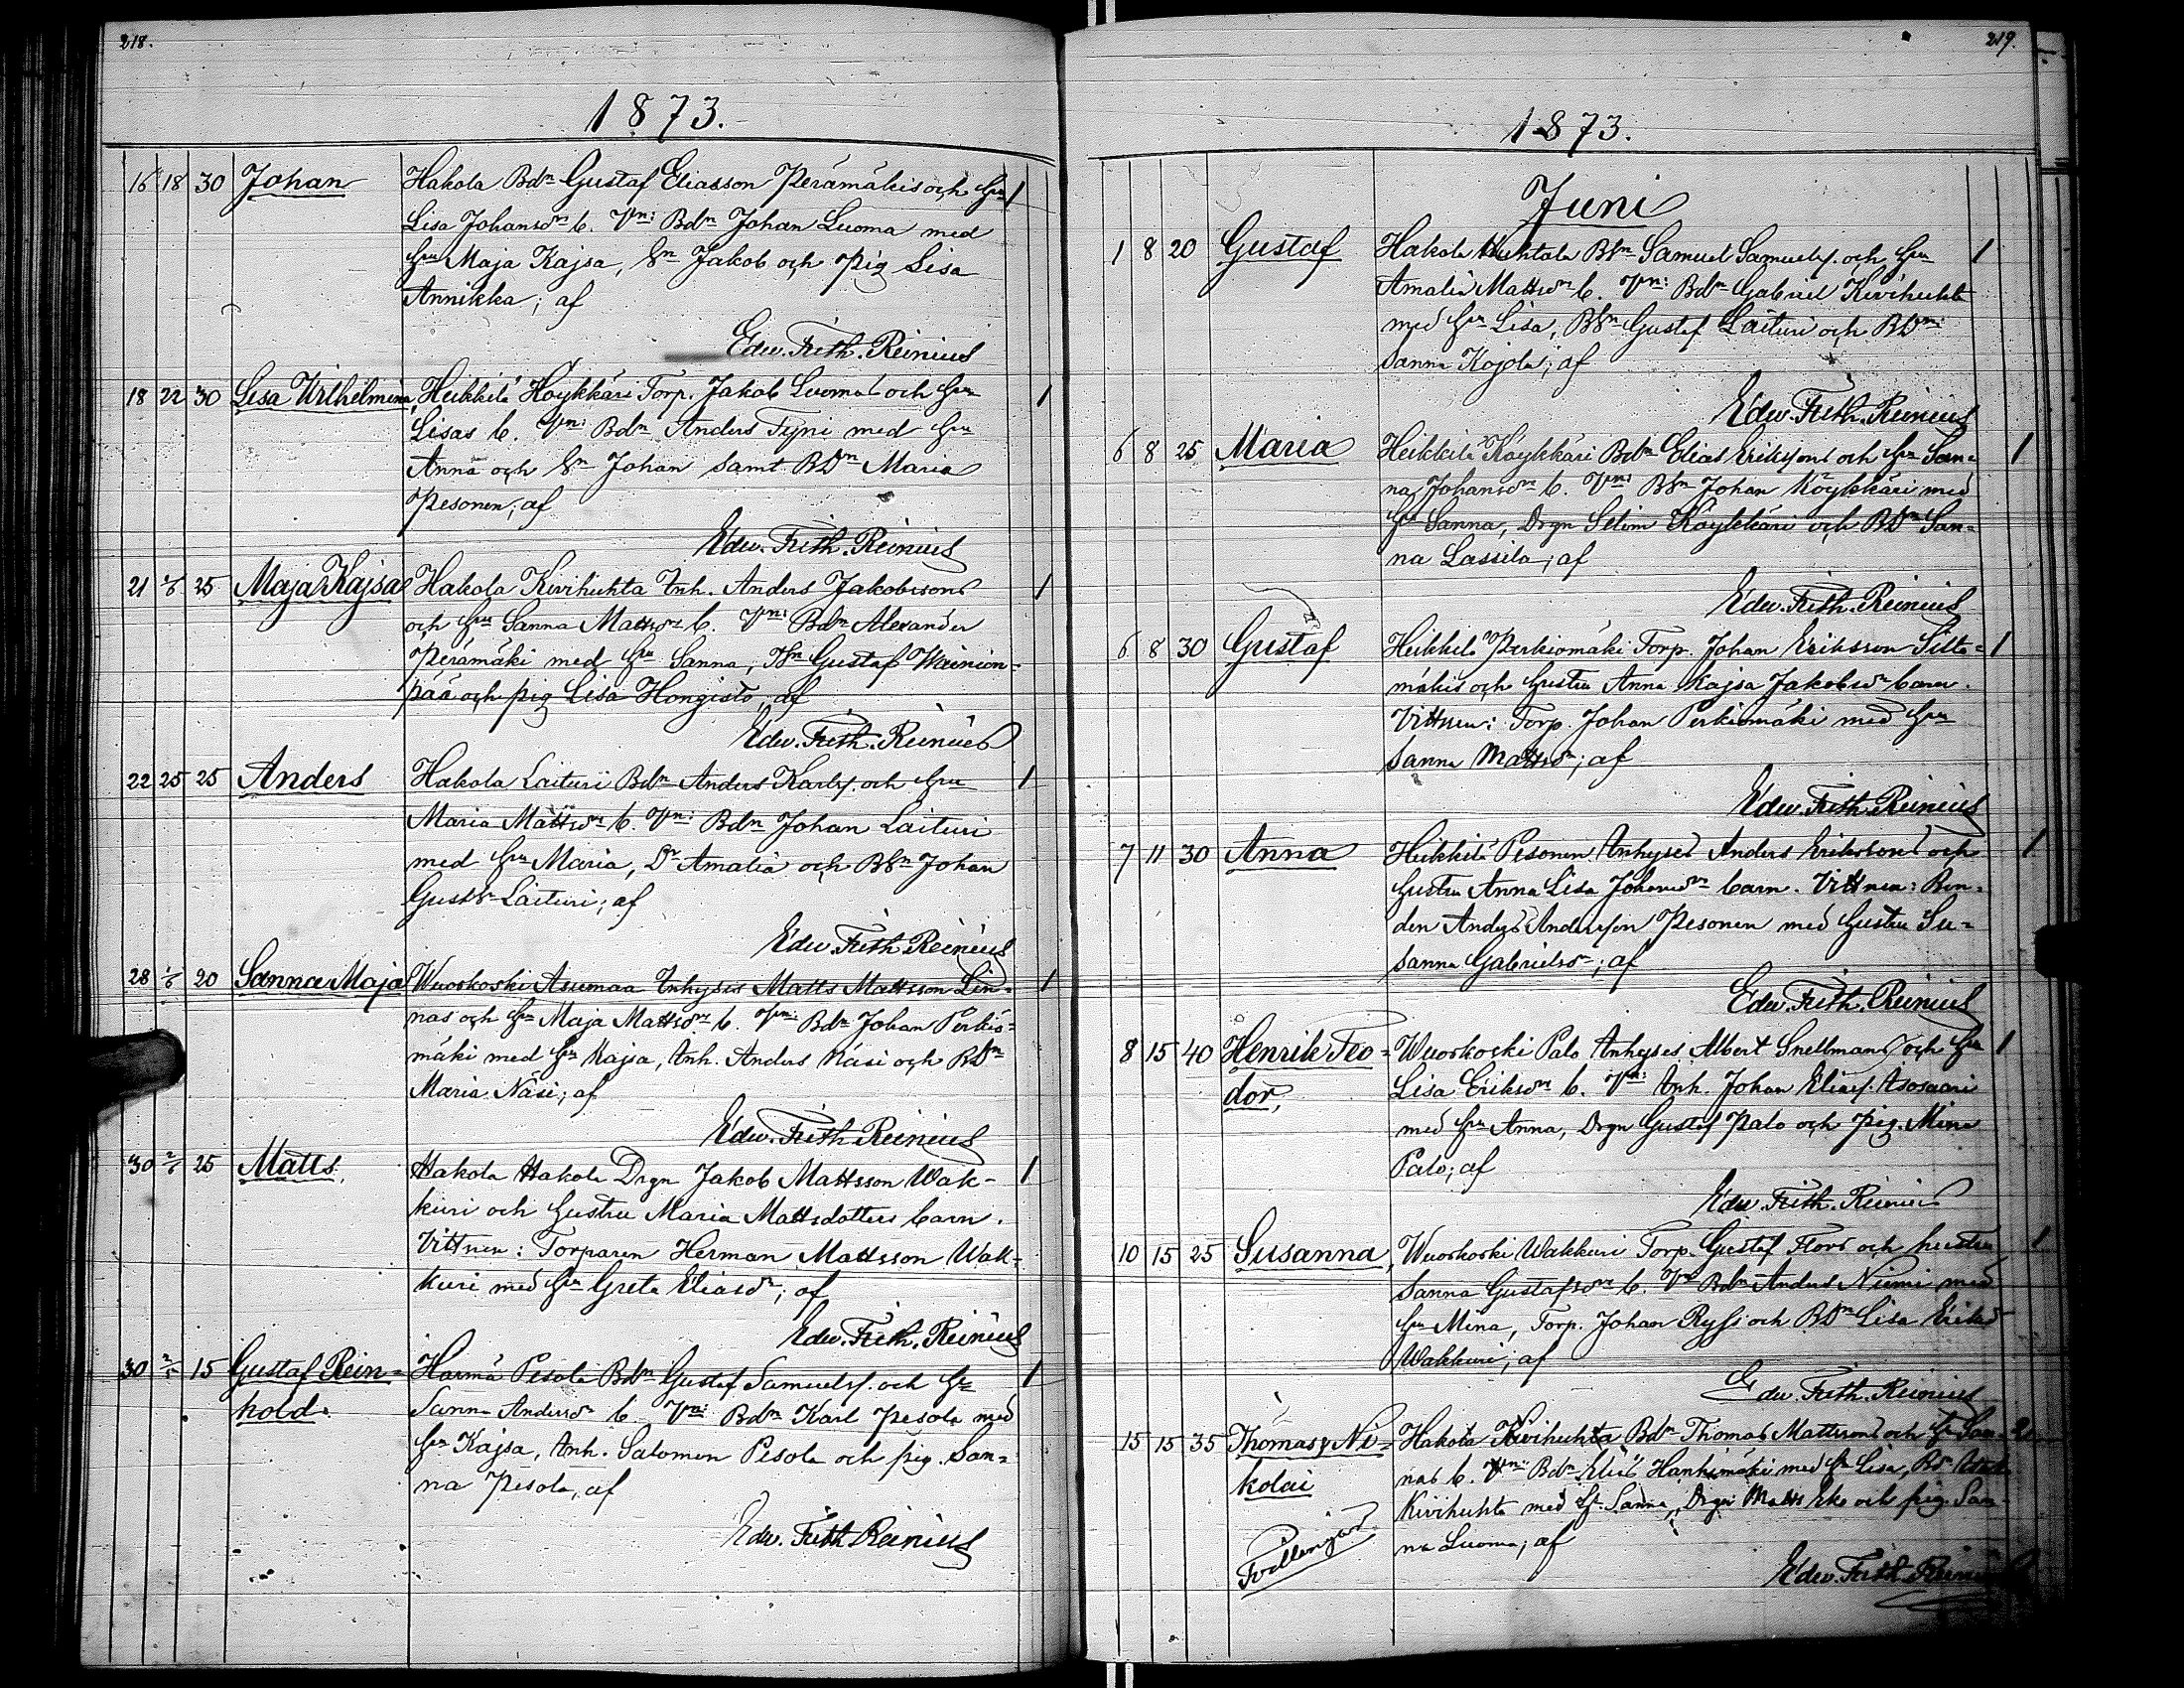 218.
1873.
16 18 30 Johan Hakola Bdn Gustaf Eliasson Perämäkis och hu 1
Lisa Johansdrs b. Vn: Bdn Johan Luoma med
hu Maja Kajsa, Sn Jakob och pig Lisa
Annikka; af
Edw. Frith. Reinius
18 22 30 Lisa Wilhelmina, Heikkilä Köykkäri Torp. Jakob Luomas och hu 1
Lisas b. Vn: Bdn Anders Typi med hu
Anna och Sn Johan samt BDn Maria
Pesonen; af
Edw. Frith. Reinius
21 1/6 25 Maja Kajsa Hakola Kivihuhta Inh. Anders Jakobssons 1
och hu Sanna Mattsdrs b. Vn: Bdn Alexander
Perämäki med hu Sanna, Gustaf Wainion-
pää och pig Lisa Hongisto, af
Edw. Frith. Reinius
22 25 25 Anders Hakola Laituri Bdn Anders Karls. och hu 1
Maria Mattsdrs b. Vn: Bdn Johan Laituri
med hu Maria, Dr Amalia och BSn Johan
Gusts. Laituri; af
Edw. Frith. Reinius
28 1/6 20 Sanna Maja Wuoskoski Asumaa Inhyses Matts Mattsson Lin- 1
nas och hu Maja Mattsdrs b. Vn: Bdn Johan Perkiö-
mäki med hu Kajsa, Inh. Anders Näsi och BDn
Maria Näsi; af
Edw. Frith. Reinius
30 2/6 25 Matts, Hakola Hakola Drgn Jakob Mattsson Wak- 1
kuri och hustru Maria Mattsdotters barn.
Vittnen: Torparen Herman Mattsson Wak-
kuri med hu Greta Eliasdr; af
Edw. Frith. Reinius
30 15 Gustaf Rein- Harmä Pesola Bdn Gustaf Samuels. och hu 1
hold. Sanna Andersdrs b. Vn: Bdn Karl Pesola med
hu Kajsa, Inh. Salomon Pesola och pig. San-
na Pesola, af
Edw. Frith. Reinius
219.
1873.
Juni
1 8 20 Gustaf Hakola Huhtala Bdn Samuel Samuels. och hu 1
Amalia Mattsdrs b. Vn: Bdn Gabriel Kivihuhta
med hu Lisa, BSn Gustaf Laituri och BDn
Sanna Kojola; af
Edw. Frith. Reinius
6 8 25 Maria Heikkilä Köykkäri Bdn Elias Erikssons och hu San- 1
na Johansdrs b. Vn: BSn Johan Köykkäri med
hu Sanna, Drgn Selim Köykkäri och BDn San-
na Lassila; af
Edw. Frith. Reinius
6 8 30 Gustaf Heikkilä Perkiomäki Torp. Johan Eriksson Silta- 1
mäkis och hustru Anna Kajsa Jakobsdrs barn.
Vittnen: Torp. Johan Perkiomäki med hu
Sanna Mattsdr; af
Edw. Frith. Reinius
7 11 30 Anna Heikkilä Pesonen Inhyses Anders Erikssons och 1
hustru Anna Lisa Johansdrs barn. Vittnen: Bon-
den Anders Andersson Pesonen med hustru Su-
sanna Gabrielsdr; af
Edw. Frith. Reinius
8 15 40 Henrik Teo- Wuoskoski Palo Inhyses Albert Snellmans och hu 1
dor, Lisa Eriksdrs b. Vn: Inh. Johan Elias. Isosaari
med hu Anna, Drgn Gustaf Palo och pig. Mina
Palo; af
Edw. Frith. Reinius
10 15 25 Susanna, Wuoskoski Wakkuri Torp. Gustaf Flors och hustru 1
Sanna Gustafsdrs b. Vn Bdn Anders Niemi med
hu Mina, Torp. Johan Ryssi och BDn Lisa Eriksdr
Wakkuri; af
Edw. Frith. Reinius
15 15 35 Thomas, Ni- Hakola Kivihuhta Bdn Thomas Mattssons och hu San-
kolai nas b. Vn: Bdn Elias Hankimäki med hu Lisa,
Kivihuhta med hu Sanna, Drgn Matts Ek och pig San-
na Luoma; af
Tvillingar
Edw. Frith. Reinius